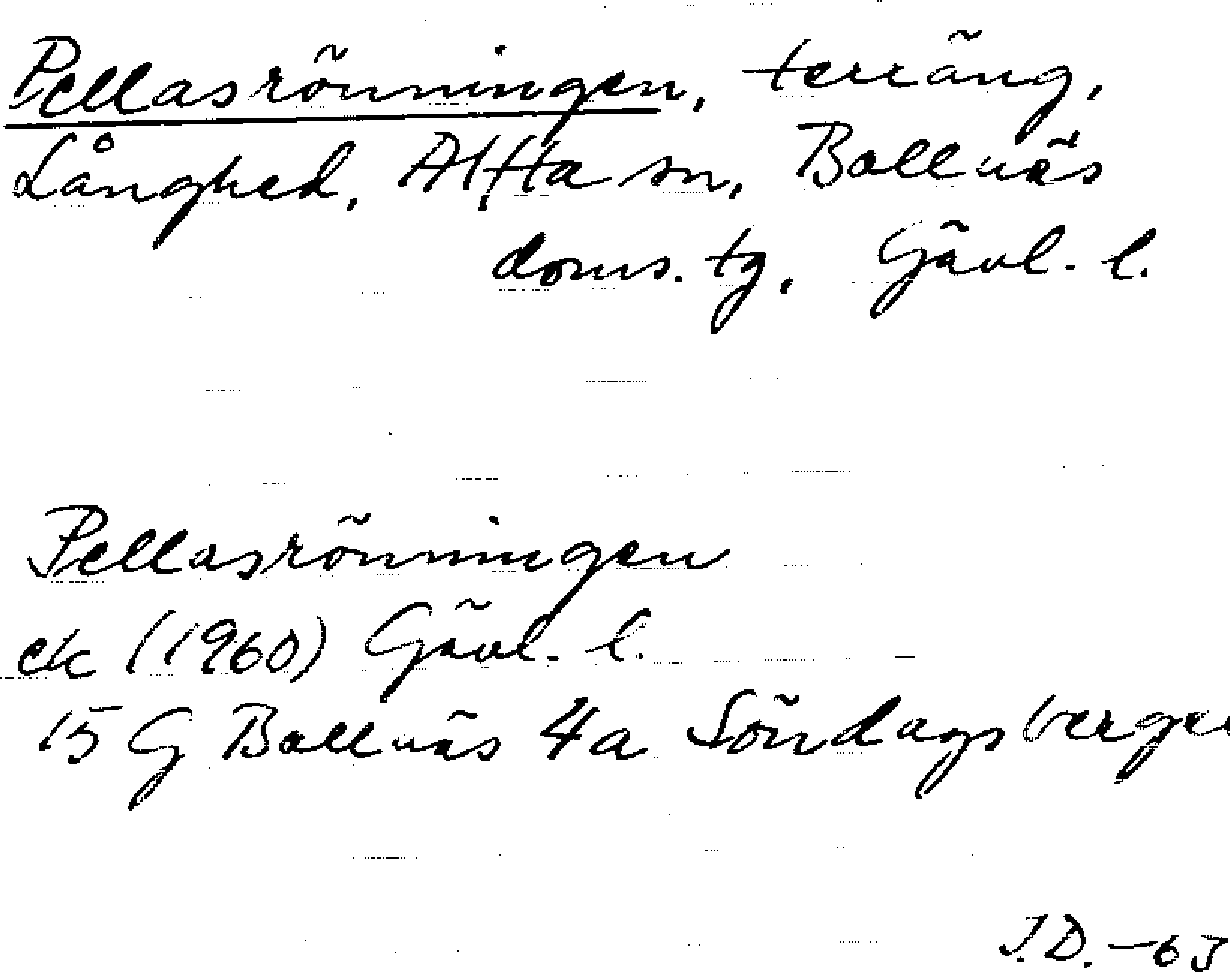 Pellasrönningen, terräng,
Långhed, Alfta sn, Bollnäs
doms. tg, Gävl. l.
Pellasrönningen
ek (1960) Gävl. l.
15 G Bollnäs 4a Söndagsberge
J.D. -63